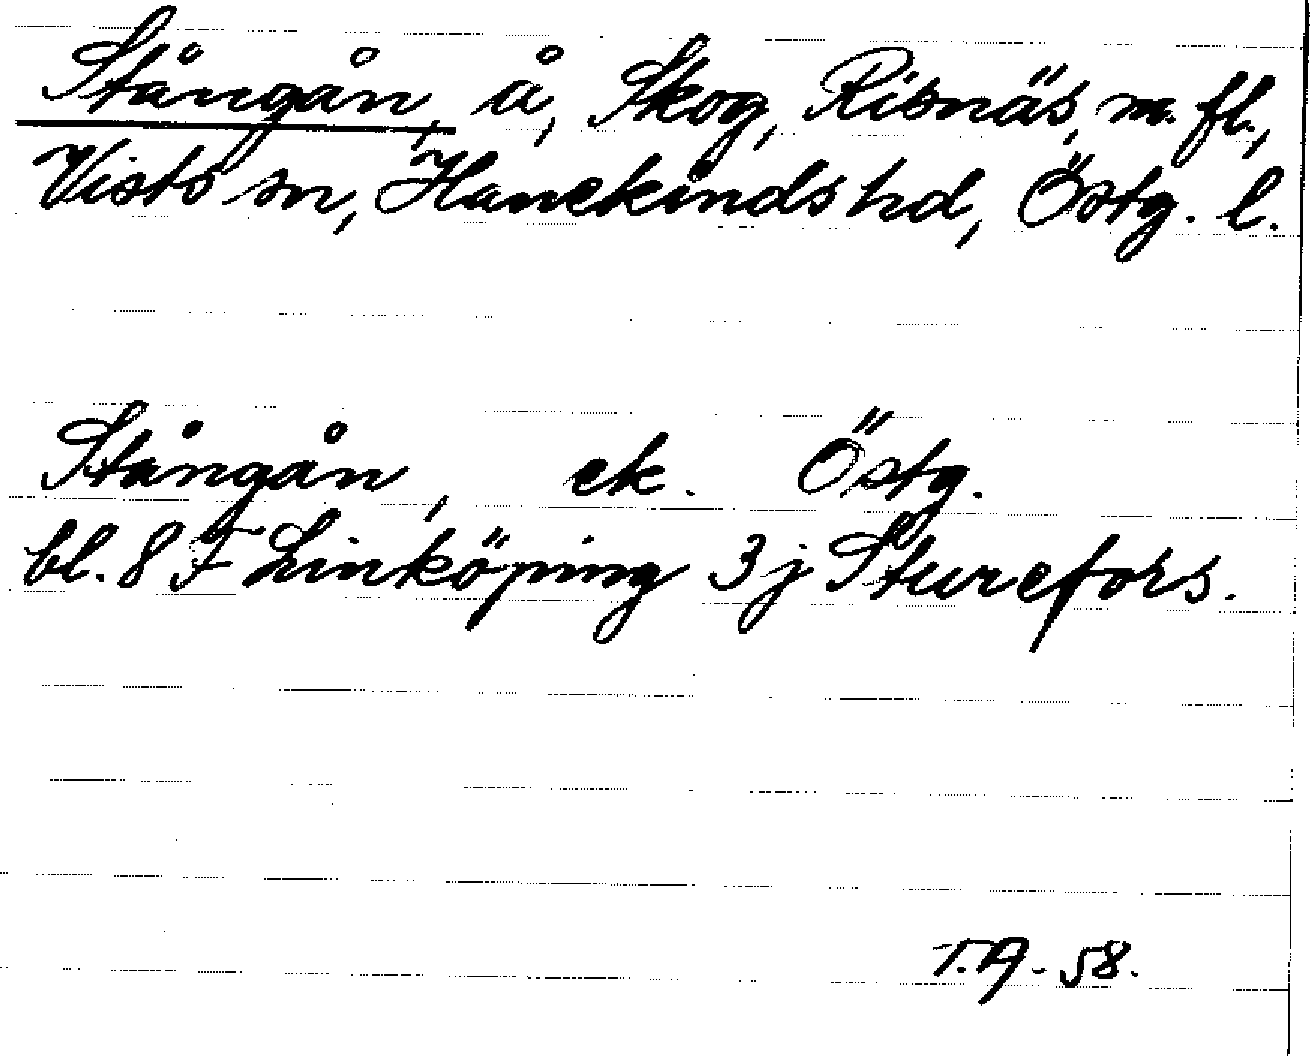 Stångån, å, Skog, Risnäs, m. fl.,
Vists sn, Hanekinds hd, Östg. l.
Stångån, ek. Östg.
bl. 8 F Linköping 3 j Sturefors.
T.A. 58.